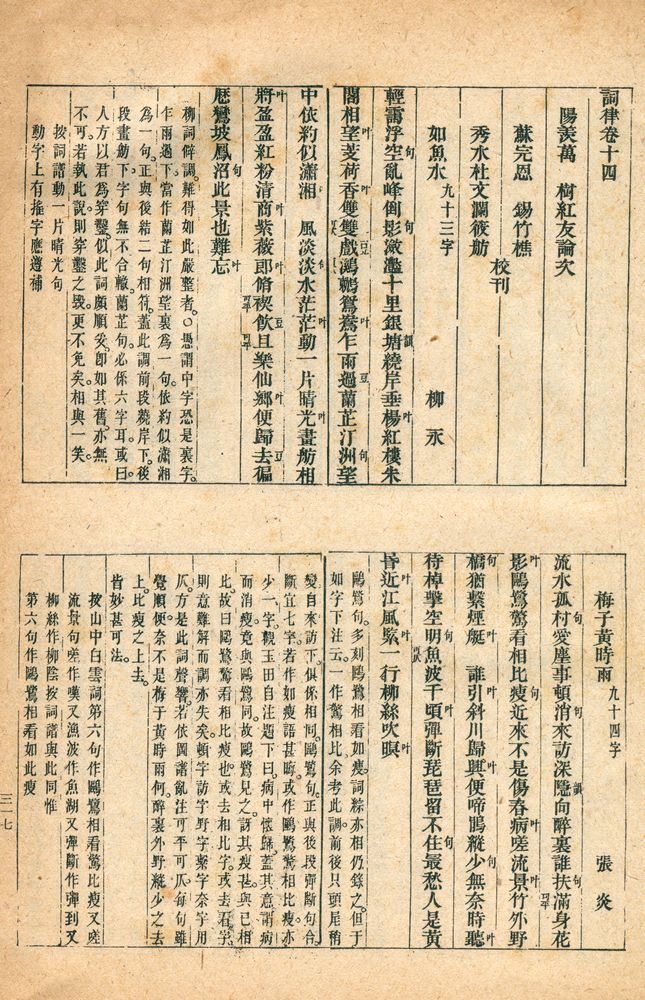 詞律卷十四
陽羨萬 樹紅友論次
蘇完恩 錫竹樵
秀水杜文瀾筱舫
校刊
如魚水 九十三字 柳永
輕靄浮空亂峰倒影瀲灧十里銀塘繞岸垂楊紅樓朱
閣相望芰荷香雙雙戲鸂鶒鴛鴦乍雨過蘭芷汀洲望
中依約似瀟湘 風淡淡水茫茫動一片晴光畫舫相
將盈盈紅粉清商紫薇郎脩禊飲且樂仙鄉便歸去徧
歷鑾坡鳳沼此景也難忘
柳詞僻調難得如此嚴整者○愚謂中字恐是裏字
乍雨過下當作蘭芷汀洲望裏為一句依約似瀟湘
為一句正與後結二句相符蓋此調前段繞岸下後
段畫舫下字句無不合轍蘭芷句必係六字耳或曰
人方以君為穿鑿似此詞頗順妥卽如其舊亦無
不可若執此說則穿鑿之毁更不免矣相與一笑
按詞譜動一片晴光句
動字上有搖字應遵補
梅子黃時雨 九十四字 張炎
流水孤村愛塵事頓消來訪深隱向醉裏誰扶滿身花
影鷗鷺驚看相比瘦近來不是傷春病嗟流景竹外野
橋猶繫煙艇 誰引斜川歸興便啼鵑縱少無奈時聽
待棹擊空明魚波千頃彈斷琵琶留不住最愁人是黃
昏近江風緊一行柳絲吹暝
鷗鷺句多刻鷗鷺相看如瘦詞綜亦相仍錄之但于
如字下注云一作驚相比余考此調前後只頭尾稍
變自來訪下俱係相同鷗鷺句正與後段彈斷句合
斷宜七字若作如瘦語甚晦或作鷗鷺驚相比瘦亦
少一字觀玉田自注題下曰病中懷歸蓋其意謂病
而消瘦竟與鷗鷺同故鷗鷺見之訝其瘦甚與已相
此故曰鷗鷺驚看相比瘦也或去相比字或去看字
則意難解而調亦失矣頓字訪字野字棄字奈字用
仄方是此詞聲響若依圖譜亂注可平可仄每句雖
覺順便奈不是梅子黃時雨何醉裏外野縱少之去
上比瘦之上去
皆妙甚可法
按山中白雲詞第六句作鷗鷺相看驚比瘦又嗟
流景句嗟作嘆又漁波作魚湖又彈斷作彈到又
柳絲作柳陰按詞譜與此同惟
第六句作鷗鷺相看如此瘦
三一七